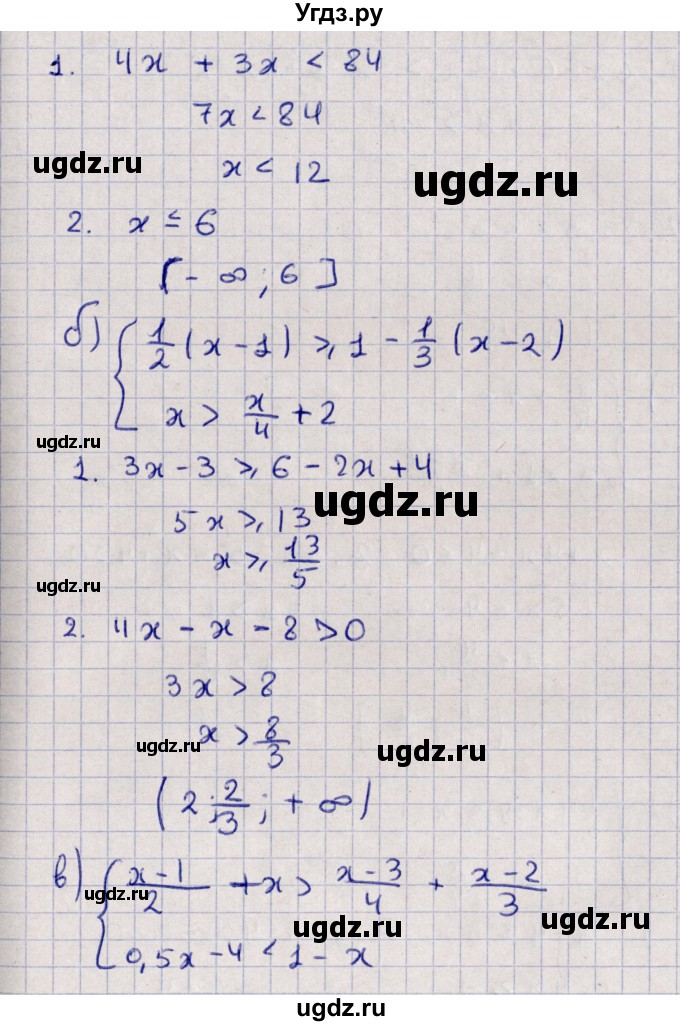 Угдз.ру
1. 4x + 3x < 84
7x < 84
ugdz.ru
x < 12
ugdz.ru
2. x ≤ 6
[-∞; 6]
б) { 1/2 (x - 1) ≥ 1 - 1/3 (x - 2)
x > x/4 + 2
ugdz.ru
1. 3x - 3 ≥ 6 - 2x + 4
ugdz.ru
5x ≥ 13
x ≥ 13/5
ugdz.ru
2. 4x - x - 8 > 0
3x > 8
x > 8/3
ugdz.ru
ugdz.ru
(2 2/3; + ∞)
в) { (x-1)/2 + x > (x-3)/4 + (x-2)/3
ugdz.ru
ugdz.ru
0,5x - 4 < 1 - x
ugdz.ru